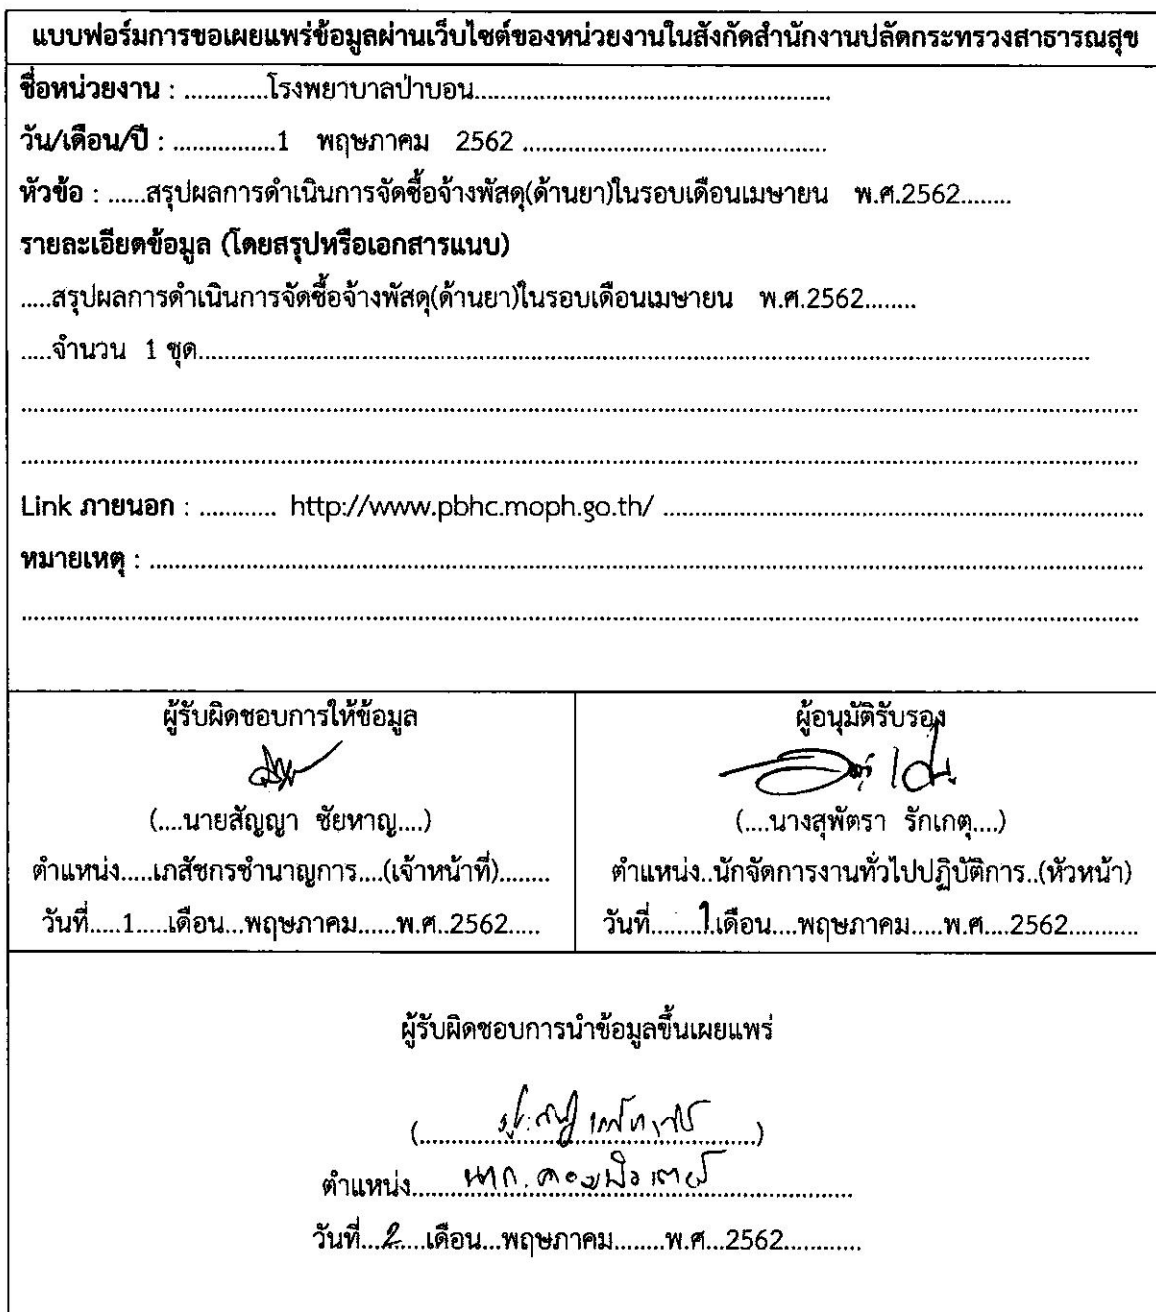 แบบฟอร์มการขอเผยแพร่ข้อมูลผ่านเว็บไซต์ของหน่วยงานในสังกัดสำนักงานปลัดกระทรวงสาธารณสุข
ชื่อหน่วยงาน : .............โรงพยาบาลป่าบอน.......................................................
วัน/เดือน/ปี : ................1 พฤษภาคม 2562 ...............................................
หัวข้อ : ......สรุปผลการดำเนินการจัดซื้อจ้างพัสดุ(ด้านยา)ในรอบเดือนเมษายน พ.ศ.2562........
รายละเอียดข้อมูล (โดยสรุปหรือเอกสารแนบ)
.....สรุปผลการดำเนินการจัดซื้อจ้างพัสดุ(ด้านยา)ในรอบเดือนเมษายน พ.ศ.2562........
.....จำนวน 1 ชุด..........................................................................................
Link ภายนอก : ............ http://www.pbhc.moph.go.th/ ..........................................................
หมายเหตุ : ..........................................................................................
ผู้รับผิดชอบการให้ข้อมูล
(....นายสัญญา ชัยหาญ....)
ตำแหน่ง.....เภสัชกรชำนาญการ....(เจ้าหน้าที่)........
วันที่.....1.....เดือน...พฤษภาคม......พ.ศ..2562.....
ผู้อนุมัติรับรอง
(....นางสุพัตรา รักเกตุ....)
ตำแหน่ง..นักจัดการงานทั่วไปปฏิบัติการ..(หัวหน้า)
วันที่........1.เดือน....พฤษภาคม.....พ.ศ....2562...........
ผู้รับผิดชอบการนำข้อมูลขึ้นเผยแพร่
ตำแหน่ง........ นวก.คอมพิวเตอร์
วันที่...2....เดือน...พฤษภาคม........พ.ศ...2562............